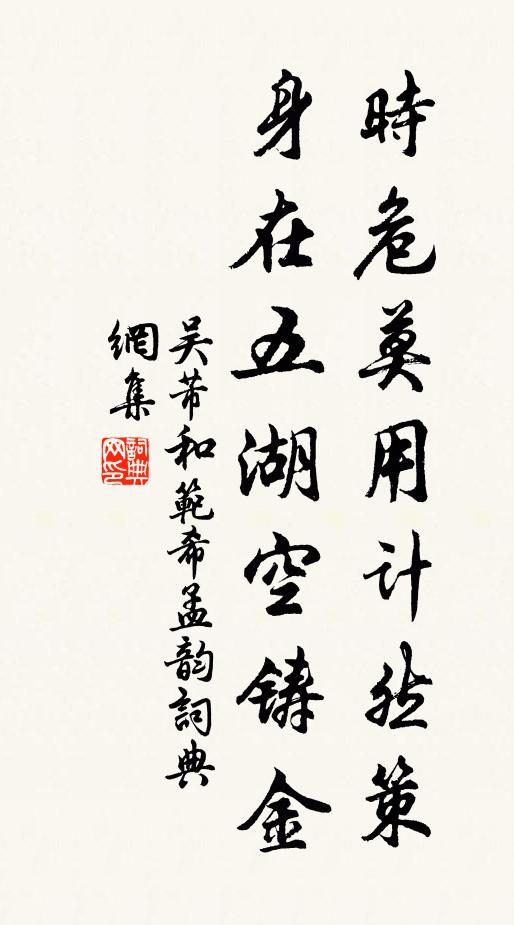 時危莫用计然策
身在五湖空鑄金
吴芾和範希孟韵詞典
網集
詞典网印